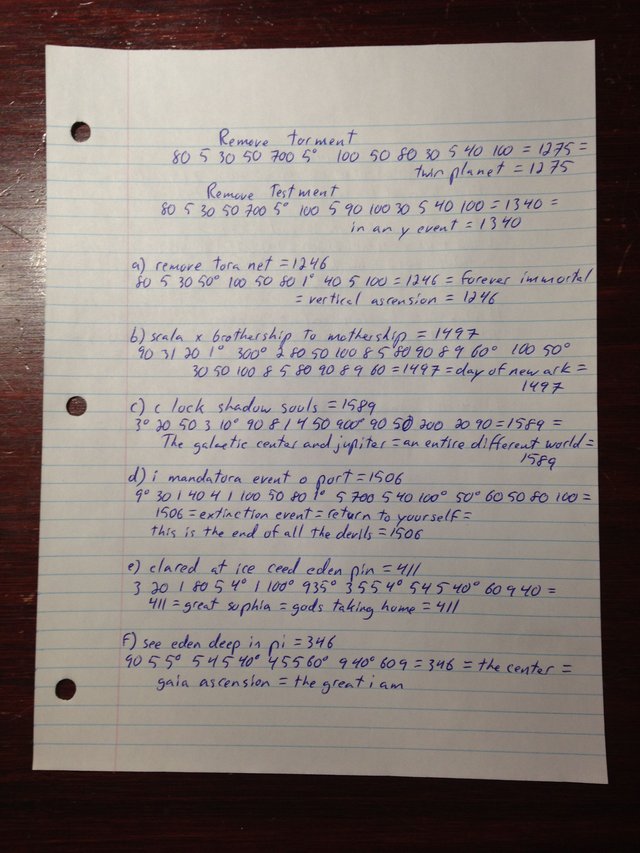 Remove torment
80 5 30 50 700 5° 100 50 80 30 5 40 100 = 1275 =
twin planet = 1275
Remove Testment
80 5 30 50 700 5° 100 5 90 100 30 5 40 100 = 1340 =
in any event = 1340
a) remove tora net = 1246
80 5 30 50° 100 50 80 1° 40 5 100 = 1246 = forever immortal
= vertical ascension = 1246
b) scala x brothership to mothership = 1497
90 31 20 1° 300° 2 80 50 100 8 5 80 90 8 9 60° 100 50°
30 50 100 8 5 80 90 8 9 60 = 1497 = day of new ark =
1497
c) c lock shadow souls = 1589
3° 20 50 3 10° 90 8 1 4 50 900° 90 50 200 20 90 = 1589 =
The galactic center and jupiter = an entire different world =
1589
d) i mandatora event o port = 1506
9° 30 1 40 4 1 100 50 80 1° 5 700 5 40 100° 50° 60 50 80 100 =
1506 = extinction event = return to yourself =
this is the end of all the devils = 1506
e) clared at ice ceed eden pin = 411
3 20 1 80 5 4° 1 100° 935° 3 5 5 4° 5 4 5 40° 60 9 40 =
411 = great sophia = gods taking home = 411
F) see eden deep in pi = 346
90 5 5° 5 4 5 40° 4 5 5 60° 9 40° 60 9 = 346 = the center =
gaia ascension = the great i am